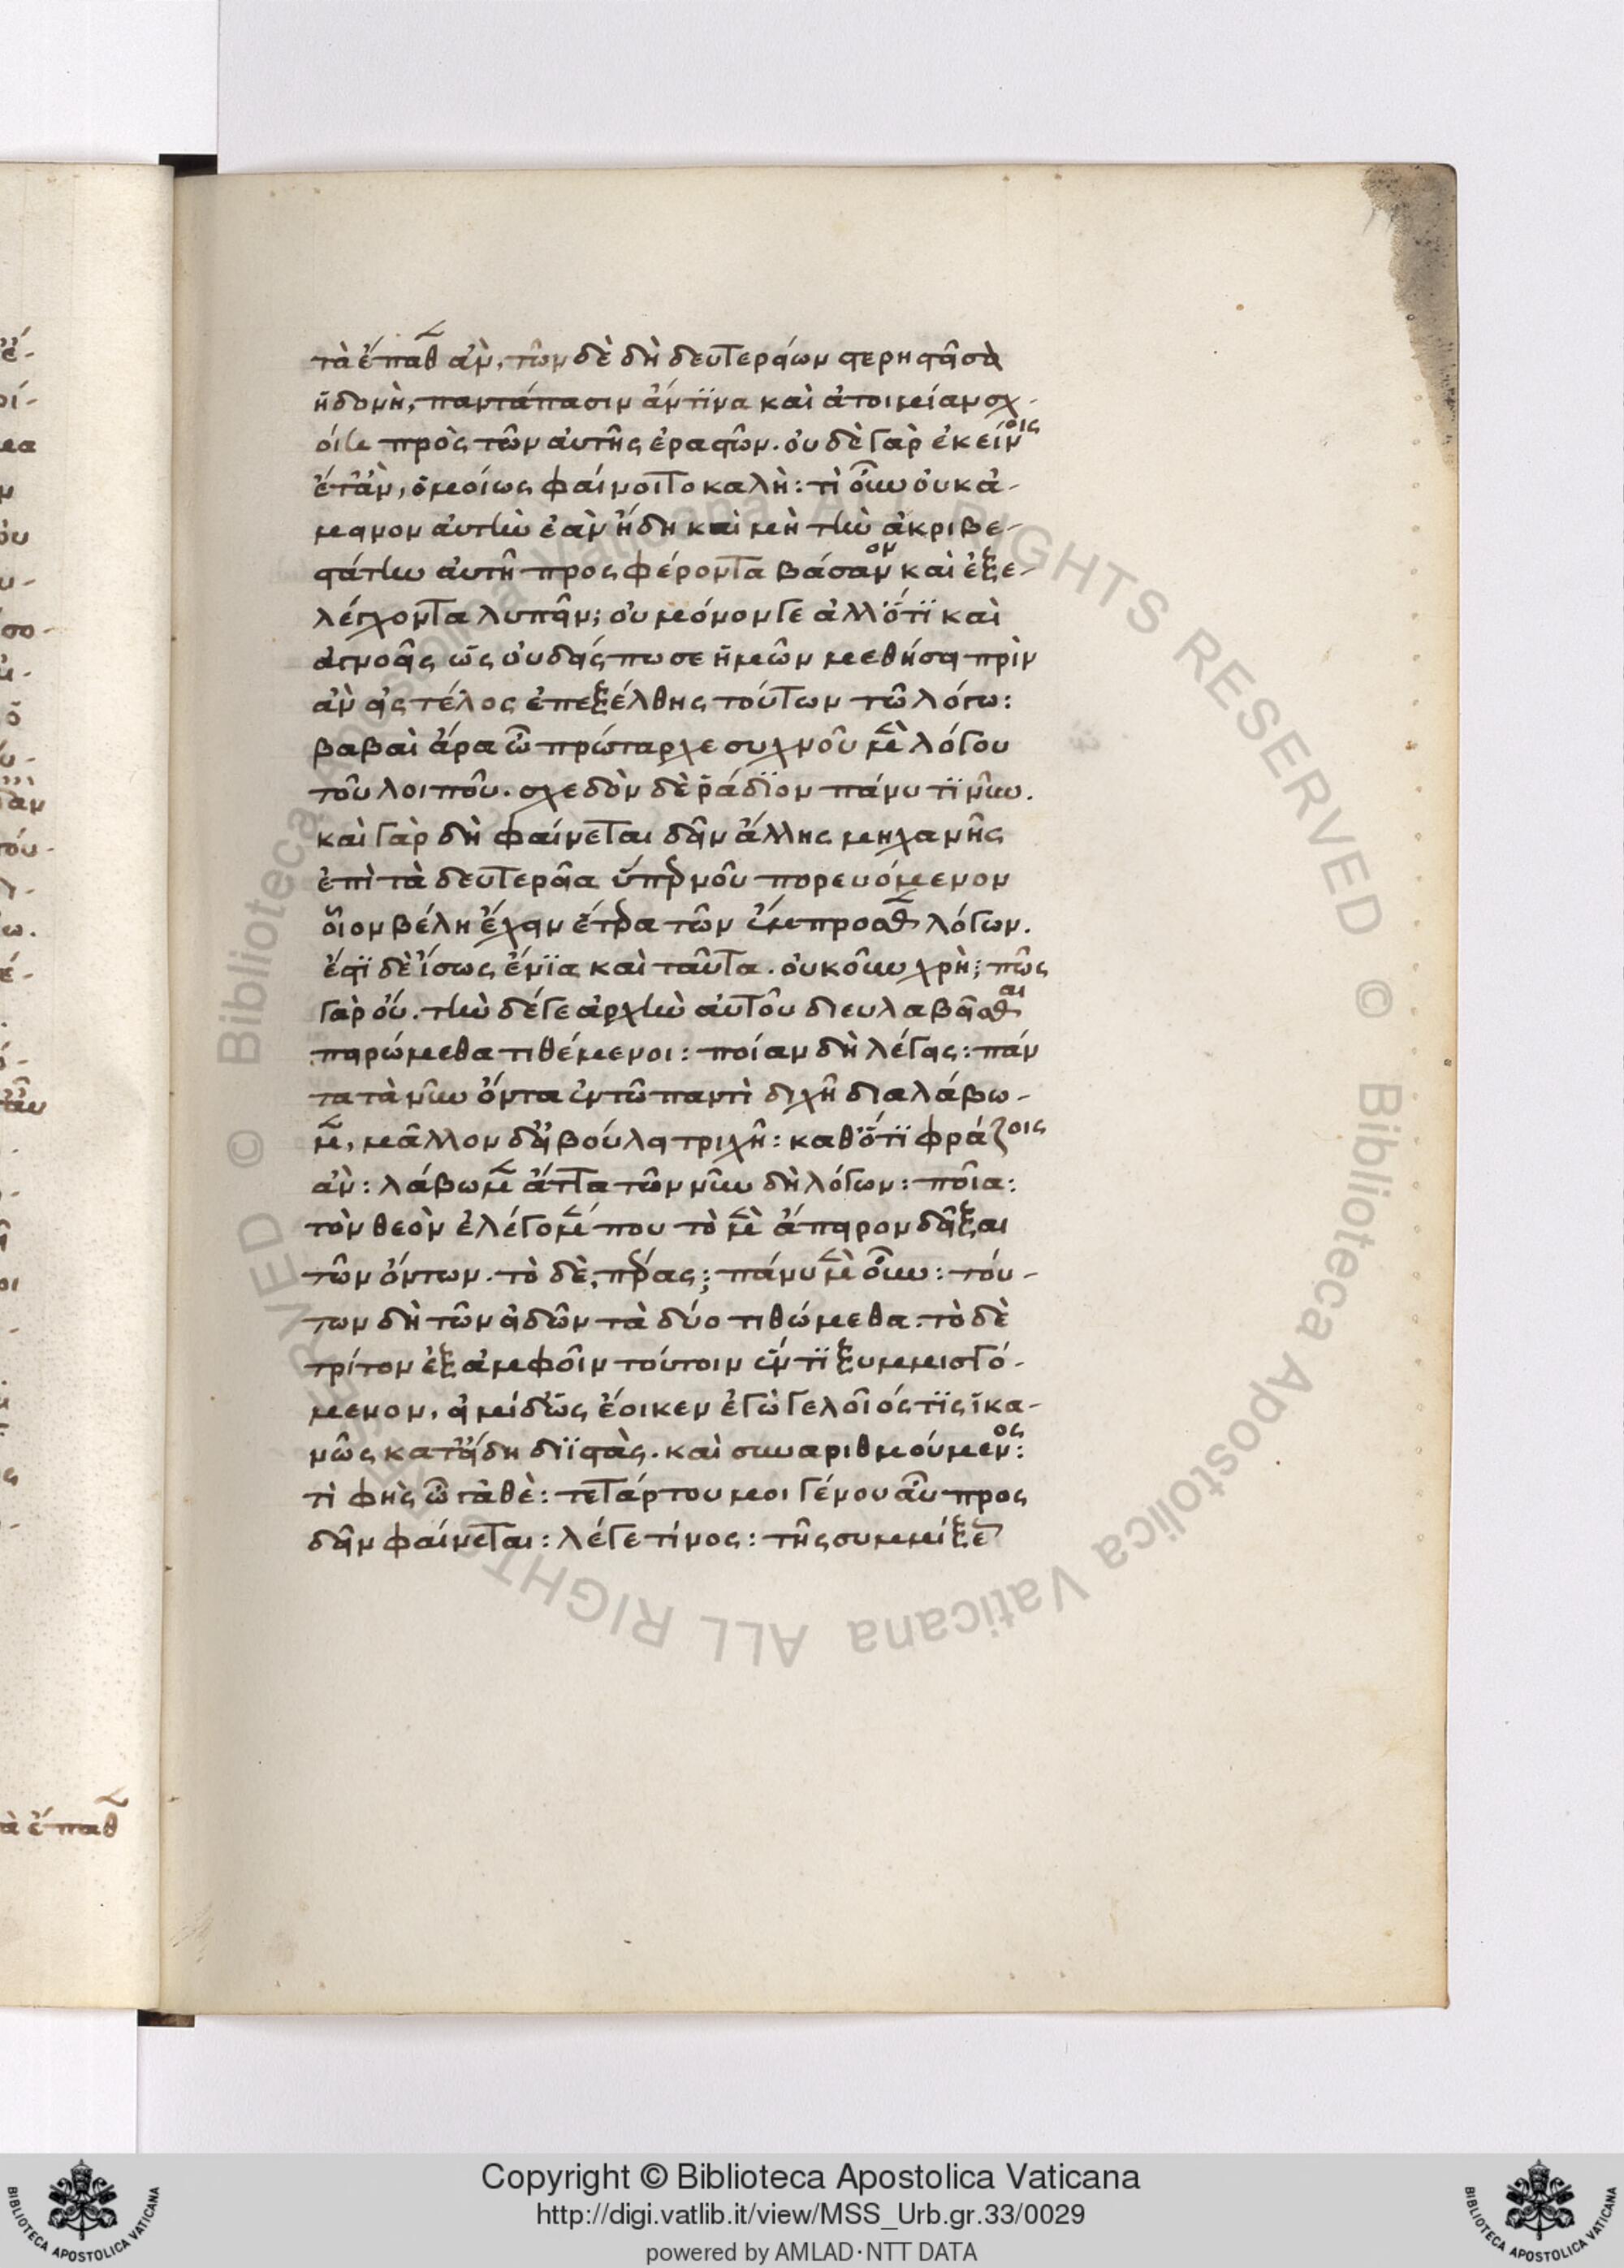 έ-
ρί-
μεα
ν
ὸυ
υ-
σο-
ὰν
τού-
ω.
έ-
ὰ ἔπαθ
τὰ ἔπαθεν ἂν, τῶν δὲ δὴ δευτερείων στερηθεῖσα
ἡδονὴ, παντάπασιν ἄν τινα καὶ ἀτοιμίαν σχ-
οίη πρὸς τῶν αὐτῆς ἐραστῶν. οὐδὲ γὰρ ἐκείνοις
ἔτ' ἂν, ὁμοίως φαίνοιτο καλὴ: τὶ οὖν οὐκ ἄ-
μεινον αὐτὴν ἐὰν ἤδη καὶ μὴ τὴν ἀκριβε-
στάτην αὐτῆ προσφέροντα βάσανον καὶ ἐξε-
λέγχοντα λυπεῖν; οὐ μόνον γε ἀλλ' ὅτι καὶ
ἀγνοεῖς ὡς οὐδείς πω σε ἡμῶν μεθήσει πρὶν
ἂν εἰς τέλος ἐπεξέλθης τούτων τῶ λόγω:
βαβαὶ ἄρα ὦ πρώταρχε συχνοῦ μὲν λόγου
τοῦ λοιποῦ. σχεδὸν δὲ ῥάδιον πάνυ τι νῦν.
καὶ γὰρ δὴ φαίνεται δεῖν ἄλλης μηχανῆς
ἐπὶ τὰ δευτερεῖα ὑπὲρ νοῦ πορευόμενον
οἷον βέλη ἔχειν ἕτερα τῶν ἔμπροσθεν λόγων.
ἔστι δὲ ἴσως ἔνια καὶ ταῦτα. οὐκοῦν χρὴ; πῶς
γὰρ οὔ. τὴν δέ γε ἀρχὴν αὐτοῦ διευλαβεῖσθαι
πειρώμεθα τιθέμενοι: ποίαν δὴ λέγεις: πάν
τα τὰ νῦν ὄντα ἐν τῶ παντὶ διχῆ διαλάβω-
μεν, μᾶλλον δ' εἰ βούλει τριχῆ: καθ' ὅτι φράζοις
ἂν: λάβωμεν ἄττα τῶν νῦν δὴ λόγων: ποῖα:
τὸν θεὸν ἐλέγομέν που τὸ μὲν ἄπειρον δεῖξαι
τῶν ὄντων. τὸ δὲ, πέρας; πάνυ μὲν οὖν: τού-
των δὴ τῶν εἰδῶν τὰ δύο τιθώμεθα. τὸ δὲ
τρίτον ἐξ ἀμφοῖν τούτοιν ἕν τι ξυμμισγό-
μενον. εἰμὶ δ' ὡς ἔοικεν ἐγὼ γελοῖός τις ἱκα-
νῶς κατ' εἴδη διιστὰς. καὶ συναριθμούμενος:
τὶ φὴς ὦ 'γαθὲ: τετάρτου μοι γένους αὖ προς
δεῖν φαίνεται: λέγε τίνος: τῆς συμμίξεως
Copyright © Biblioteca Apostolica Vaticana
http://digi.vatlib.it/view/MSS_Urb.gr.33/0029
powered by AMLAD·NTT DATA
BIBLIOTECA APOSTOLICA VATICANA
BIBLIOTECA APOSTOLICA VATICANA
© Biblioteca Apostolica Vaticana ALL RIGHTS RESERVED © Biblioteca Apostolica Vaticana ALL RIGHTS RESERVED